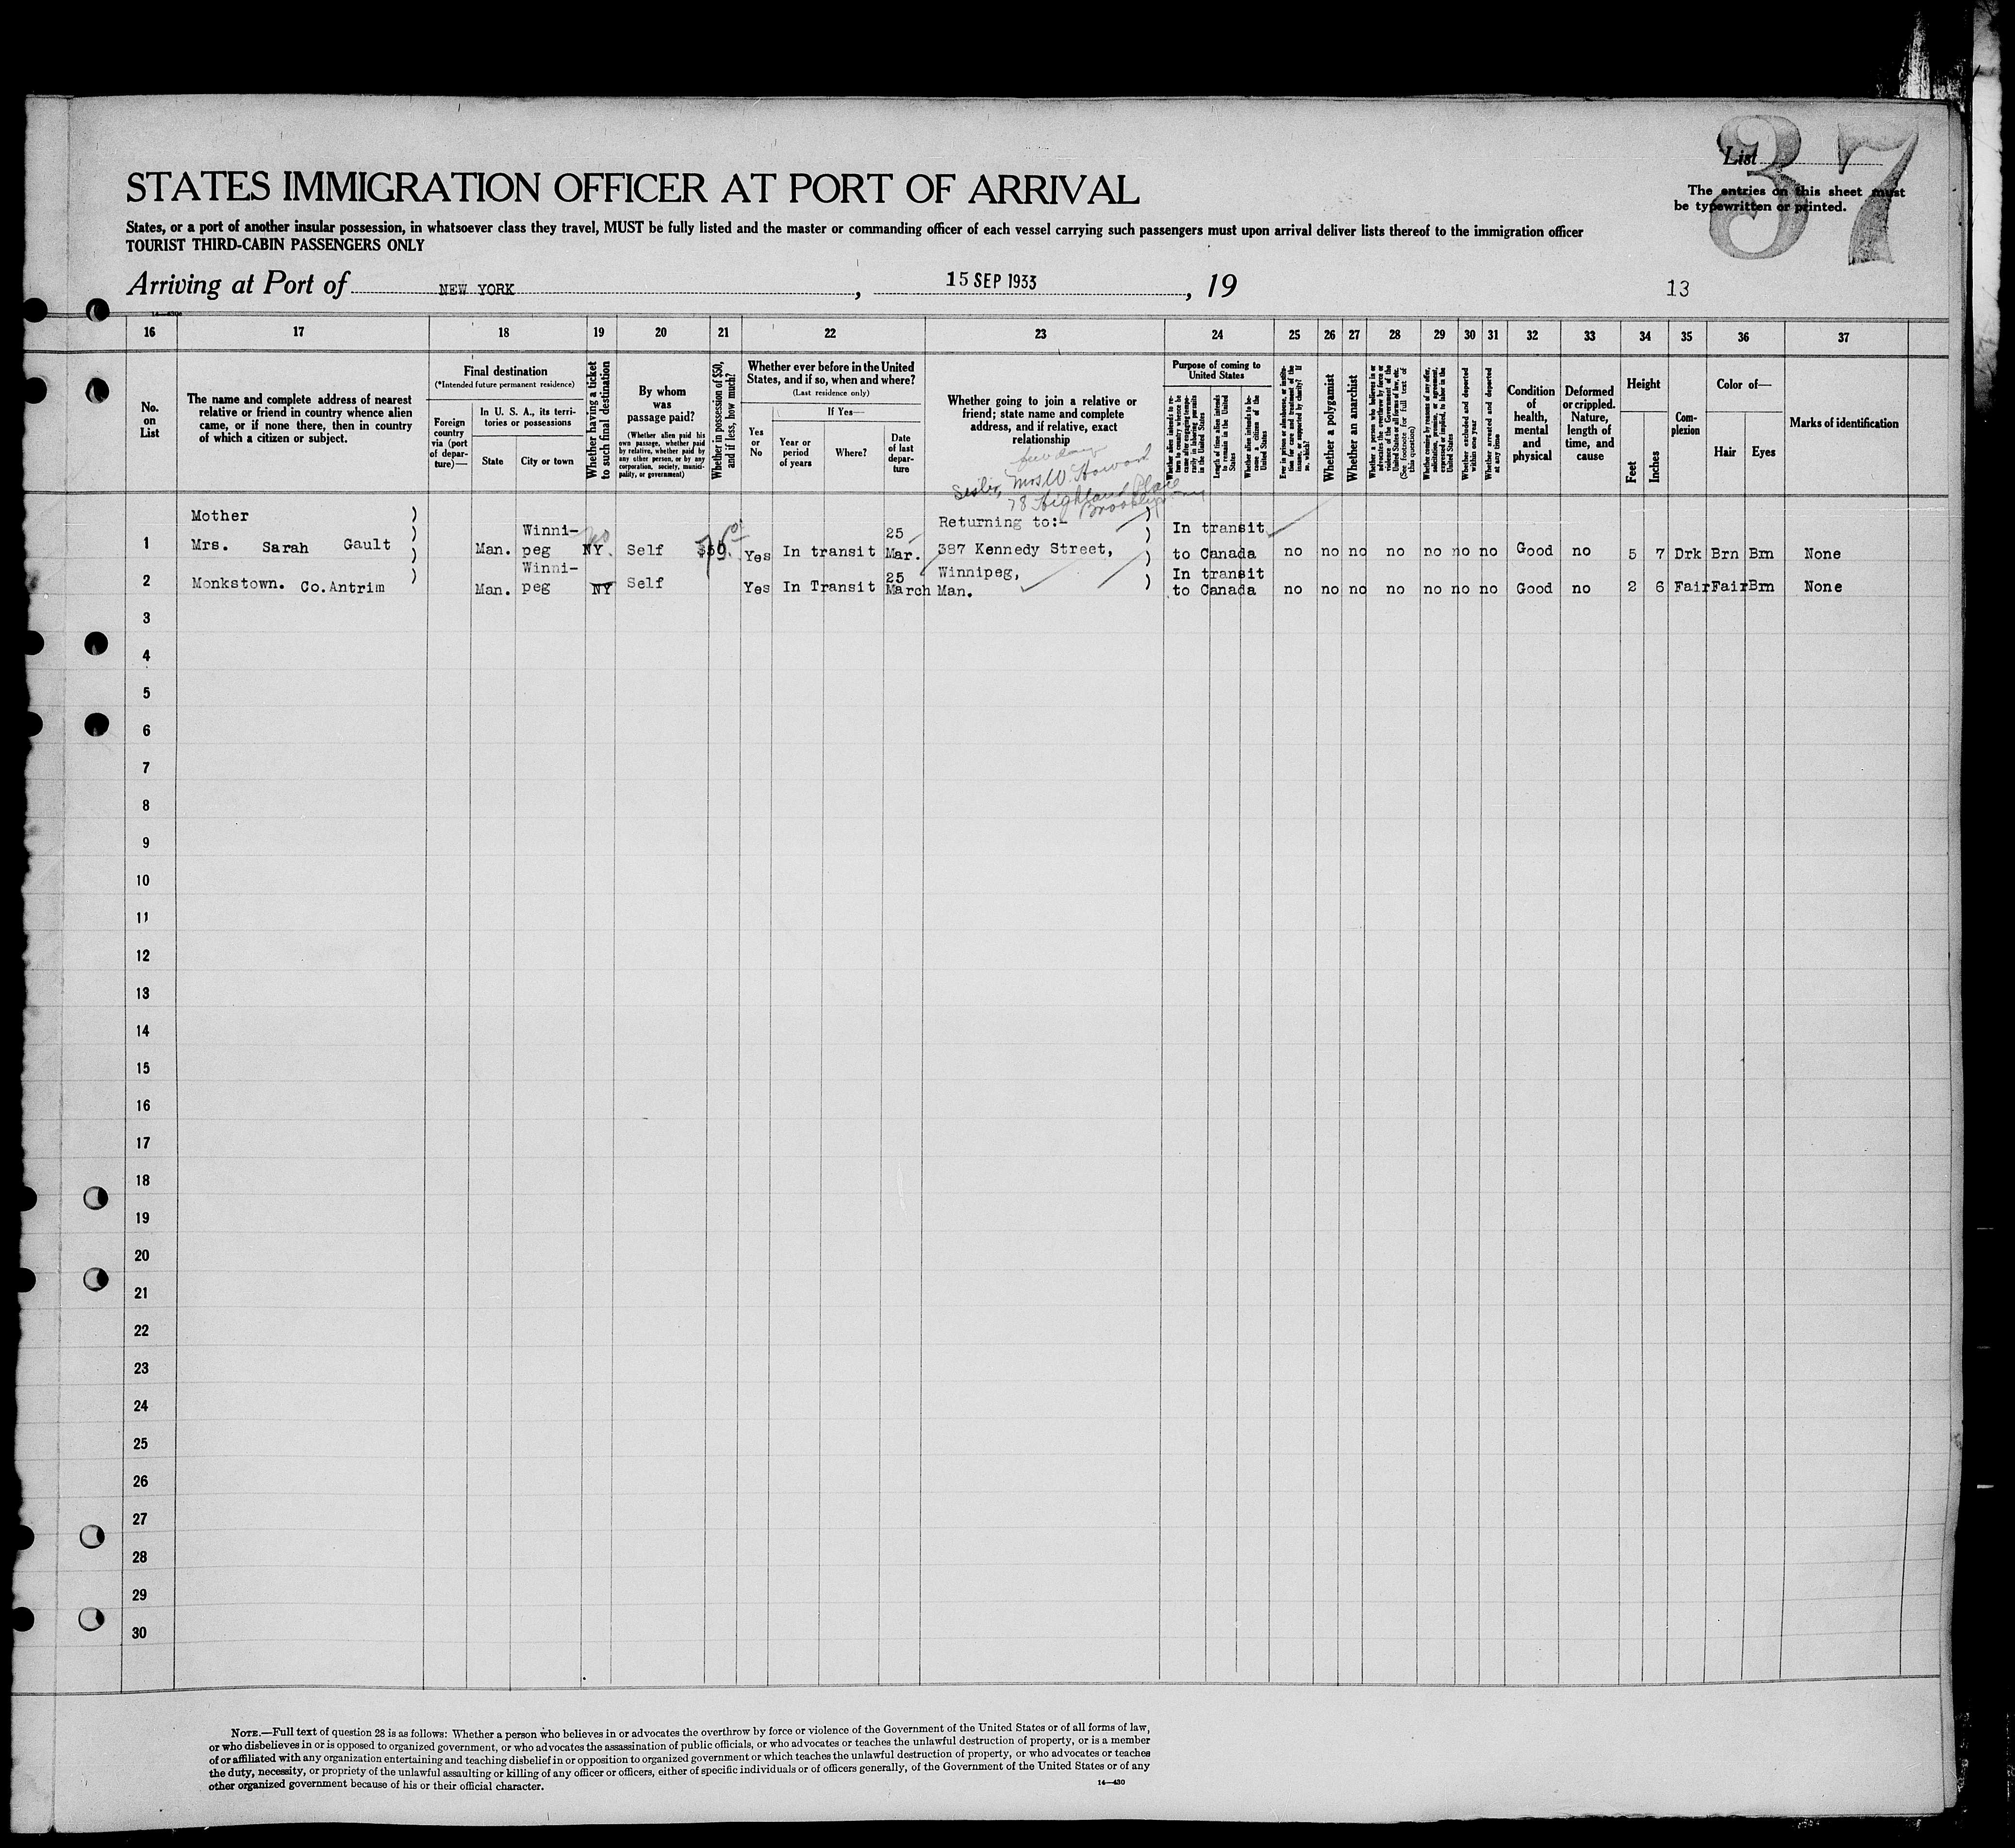 37
List
The entries on this sheet must
be typewritten or printed.
STATES IMMIGRATION OFFICER AT PORT OF ARRIVAL
States, or a port of another insular possession, in whatsoever class they travel, MUST be fully listed and the master or commanding officer of each vessel carrying such passengers must upon arrival deliver lists thereof to the immigration officer
TOURIST THIRD-CABIN PASSENGERS ONLY
Arriving at Port of NEW YORK, 15 SEP 1933, 19
13
16 17 18 19 20 21 22 23 24 25 26 27 28 29 30 31 32 33 34 35 36 37
No. on List
The name and complete address of nearest
relative or friend in country whence alien
came, or if none there, then in country
of which a citizen or subject.
Final destination
(*Intended future permanent residence)
Foreign country via (port of departure)—
In U. S. A., its territories or possessions
State
City or town
Whether having a ticket to such final destination
By whom was passage paid?
(Whether alien paid his own passage, whether paid by relative, whether paid by any other person, or by any corporation, society, municipality, or government)
Whether in possession of $50, and if less, how much?
Whether ever before in the United
States, and if so, when and where?
(Last residence only)
Yes or No
If Yes—
Year or period of years
Where?
Date of last departure
Whether going to join a relative or
friend; state name and complete
address, and if relative, exact
relationship
Purpose of coming to
United States
Whether alien intends to return to country whence he came after engaging temporarily in laboring pursuits in the United States
Length of time alien intends to remain in the United States
Whether alien intends to become a citizen of the United States
Ever in prison or almshouse, or institution for care and treatment of the insane, or supported by charity? If so, which?
Whether a polygamist
Whether an anarchist
Whether a person who believes in or advocates the overthrow by force or violence of the Government of the United States or all forms of law, etc. (See footnote for full text of this question)
Whether coming by reasons of any offer, solicitation, promise, or agreement, expressed or implied, to labor in the United States
Whether excluded and deported within one year
Whether arrested and deported at any time
Condition of health, mental and physical
Deformed or crippled. Nature, length of time, and cause
Height
Feet
Inches
Complexion
Color of—
Hair
Eyes
Marks of identification
few days
Sister, Mrs W. Howard
78 Highland Place
Brooklyn
Mother ) Winni- no 25 Returning to:- ) In transit
1 Mrs. Sarah Gault ) Man. peg NY. Self $50. Yes In transit Mar. 387 Kennedy Street, ) to Canada no no no no no no no Good no 5 7 Drk Brn Brn None
Winni- 25 Winnipeg, In transit
2 Monkstown. Co.Antrim ) Man. peg NY Self Yes In Transit March Man. ) to Canada no no no no no no no Good no 2 6 Fair Fair Brn None
3
4
5
6
7
8
9
10
11
12
13
14
15
16
17
18
19
20
21
22
23
24
25
26
27
28
29
30
NOTE.—Full text of question 28 is as follows: Whether a person who believes in or advocates the overthrow by force or violence of the Government of the United States or of all forms of law,
or who disbelieves in or is opposed to organized government, or who advocates the assassination of public officials, or who advocates or teaches the unlawful destruction of property, or is a member
of or affiliated with any organization entertaining and teaching disbelief in or opposition to organized government or which teaches the unlawful destruction of property, or who advocates or teaches
the duty, necessity, or propriety of the unlawful assaulting or killing of any officer or officers, either of specific individuals or of officers generally, of the Government of the United States or of any
other organized government because of his or their official character.
14—430